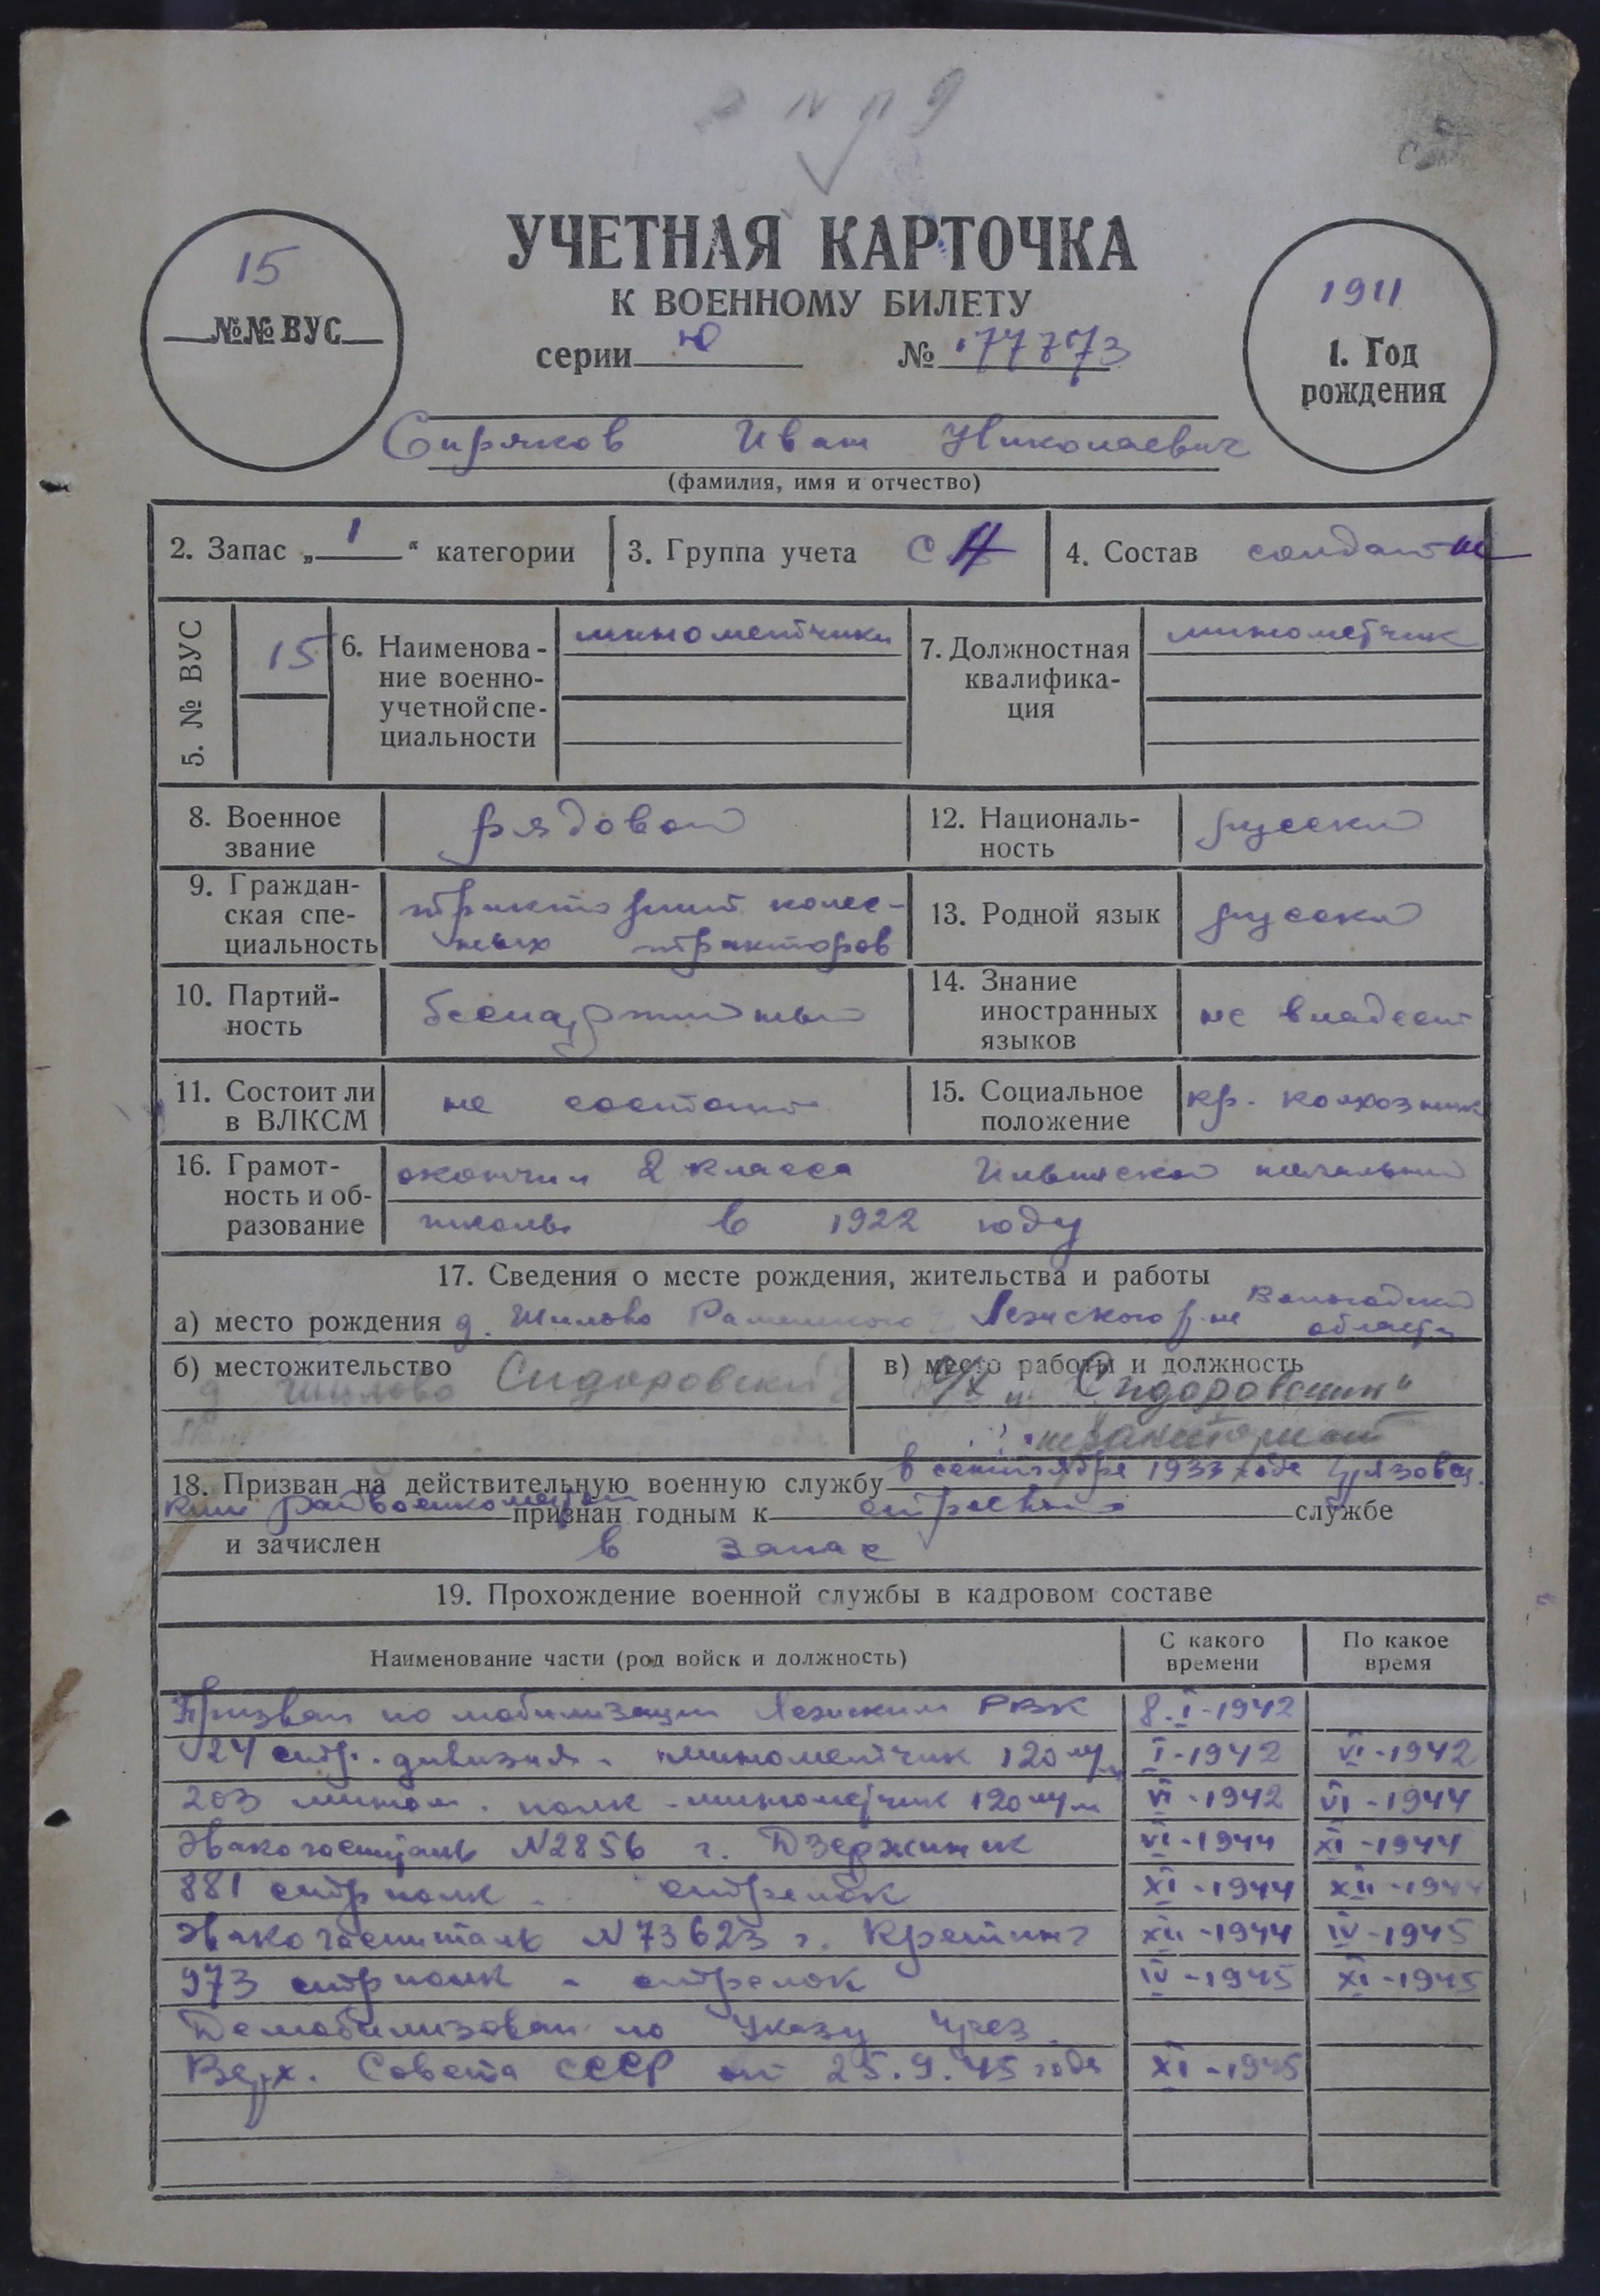 УЧЕТНАЯ КАРТОЧКА
К ВОЕННОМУ БИЛЕТУ
15
№№ ВУС
1911
1. Год рождения
серии Ю № 177873
Сиряков Иван Николаевич
(фамилия, имя и отчество)
2. Запас „ 1 “ категории
3. Группа учета СА
4. Состав солдаты
5. № ВУС 15
6. Наименова-
ние военно-
учетной спе-
циальности
минометчики
7. Должностная
квалифика-
ция
минометчик
8. Военное
звание
рядовой
12. Националь-
ность
русский
9. Граждан-
ская спе-
циальность
тракторист колес-
ных тракторов
13. Родной язык русский
10. Партий-
ность
беспартийный
14. Знание
иностранных
языков
не владеет
11. Состоит ли
в ВЛКСМ
не состоит
15. Социальное
положение
кр. колхозник
16. Грамот-
ность и об-
разование
окончил 2 класса Ильинской начальной
школы в 1922 году
17. Сведения о месте рождения, жительства и работы
а) место рождения д. Шилово Раменского Лежского р-на Вологодской
области
б) местожительство
д Шилово Сидоровский
в) место работы и должность
"Сидоровский"
18. Призван на действительную военную службу в сентябре 1933 года Грязовец-
ким райвоенкоматом признан годным к строевой службе
и зачислен в запас
19. Прохождение военной службы в кадровом составе
Наименование части (род войск и должность)
С какого
времени
По какое
время
Призван по мобилизации Лежским РВК 8.I-1942
24 стр. дивизия - минометчик 120 мм I-1942 VI-1942
203 мином. полк - минометчик 120 мм VI-1942 VI-1944
Эвакогоспиталь N2856 г. Дзержинск VI-1944 XI-1944
881 стр полк - стрелок XI-1944 XII-1944
Эвакогоспиталь N73623 г. Кретинг XII-1944 IV-1945
973 стр полк - стрелок IV-1945 XI-1945
Демобилизован по Указу През.
Верх. Совета СССР от 25.9.45 года XI-1945